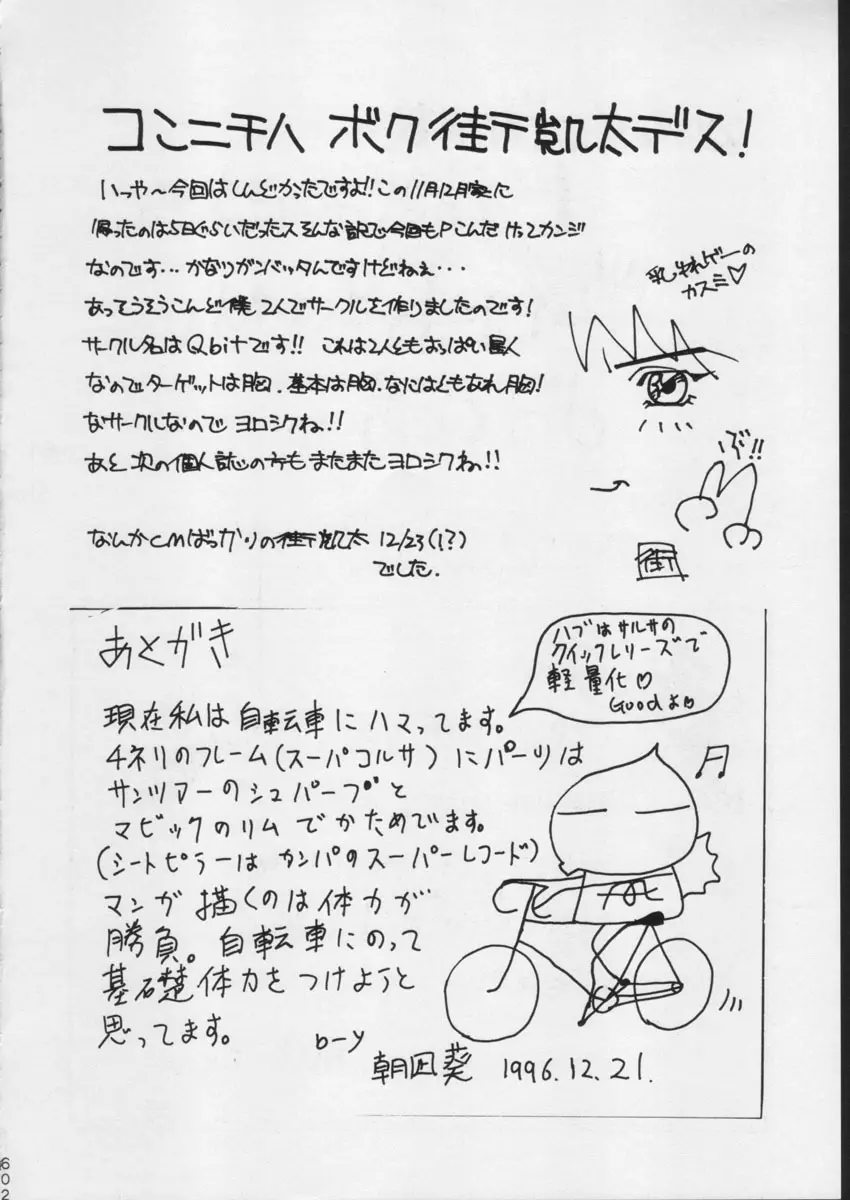 コンニチハ ボク街丁凱太デス!
いっや〜今回はしんどかったですよ!!この11月12月家に
帰ったのは5日ぐらいだったスそんな訳で今回もPこんだけってカンジ
なのです…かなりガンバッタんですけどねぇ・・・
あっそうそうこんど僕2人でサークルを作りましたのです!
サークル名はQbitです!! これは2人ともおっぱい星人
なのでターゲットは胸.基本は胸.なにはともあれ胸!
なサークルなので ヨロシクね!!
あと 次の個人誌の方もまたまたヨロシクねっ!!
なんかCMばっかりの街丁凱太 12/23(!?)
でした.
乳ゆれゲーの
カスミ♡
ぶ!!
街丁
あとがき
ハブはサルサの
クイックレリーズで
軽量化♡
Goodよ♡
現在私は自転車にハマってます。
チネリのフレーム(スーパコルサ)にパーツは
サンツアーのシュパーブと
マビックのリムでかためてます。
(シートピラーはカンパのスーパーレコード)
マンガ描くのは体力が
勝負。自転車にのって
基礎体力をつけようと
思ってます。
by
朝凪葵 1996.12.21.
602